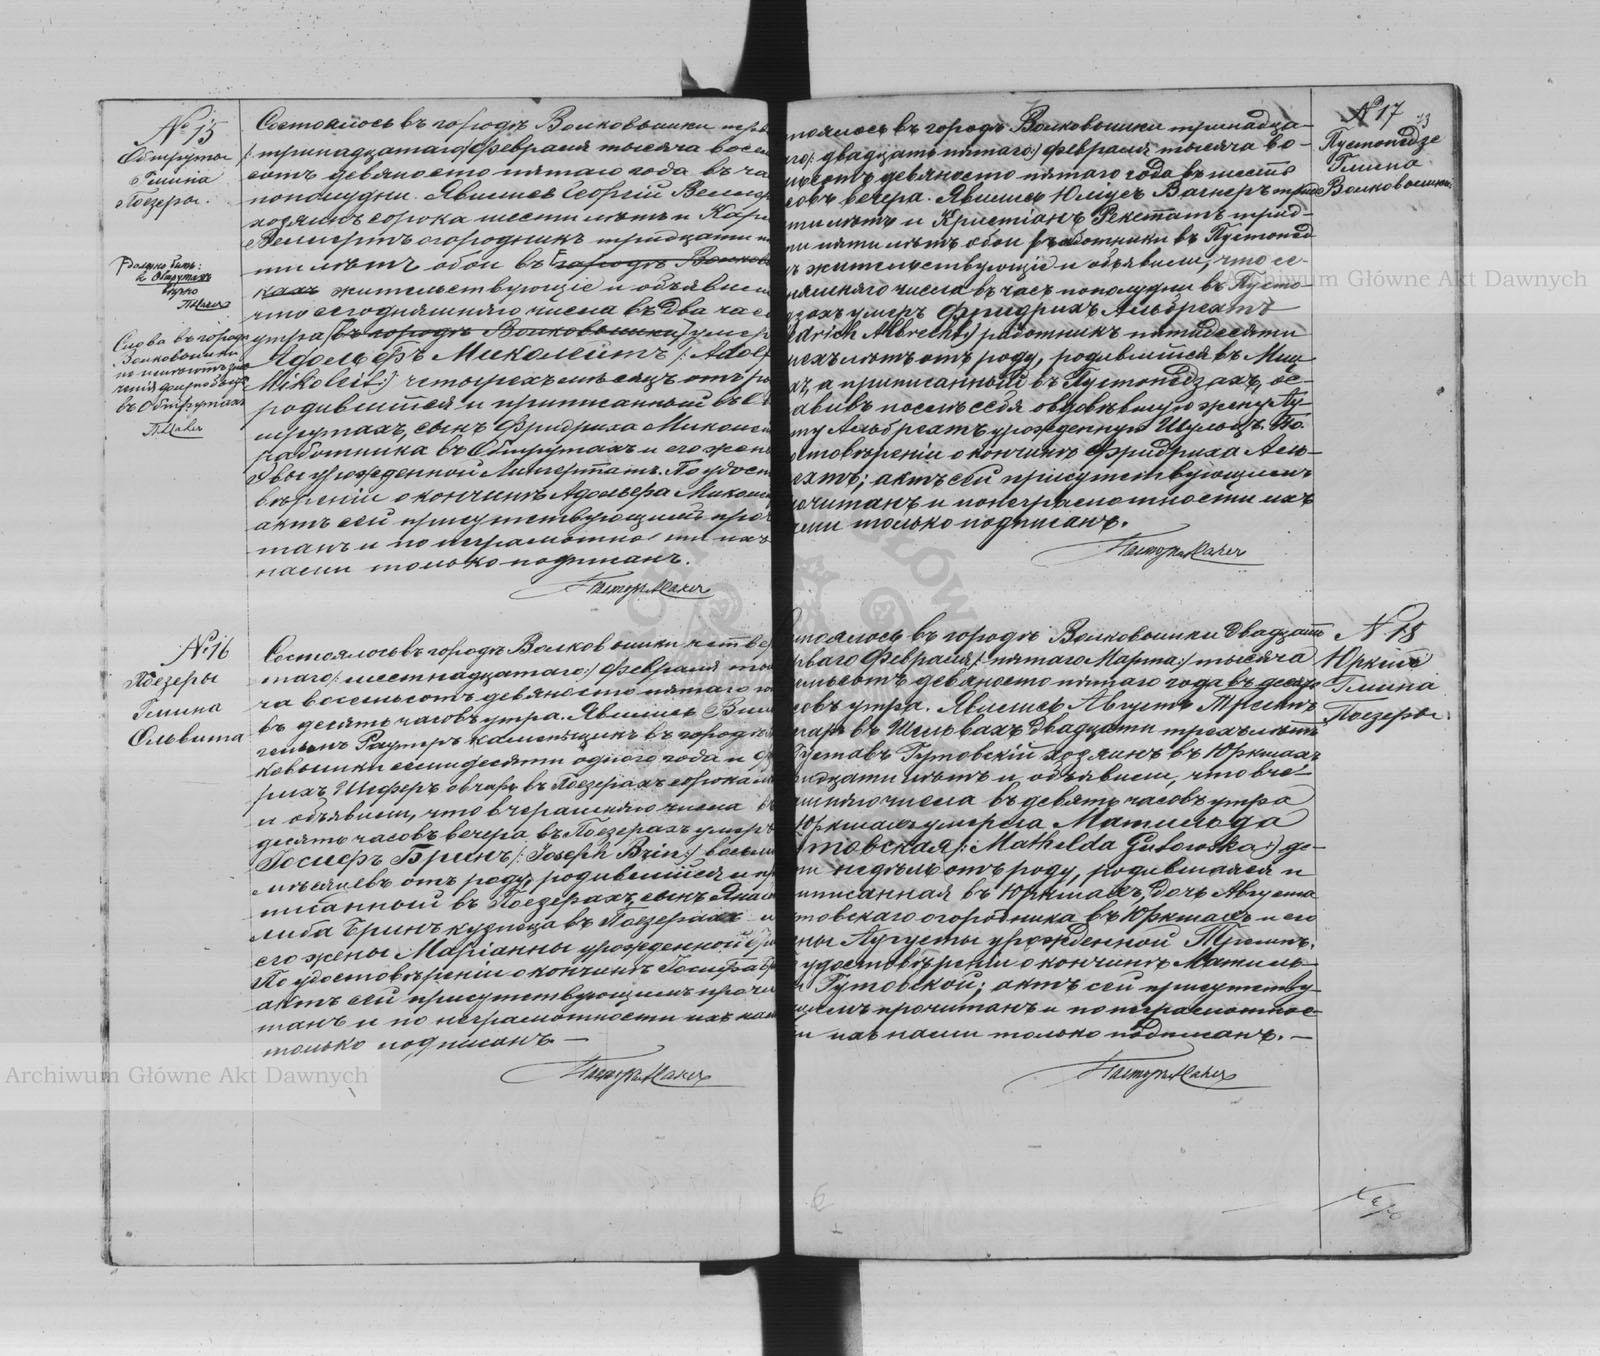 № 15
Обшруты
Гмина
Поезеры.
Должно быть:
въ Обшрутахъ
вѣрно
Слова въ городѣ
Волковышки
въ Обшрутахъ
Состоялось въ городѣ Волковышки
/: тринадцатаго:/ Февраля тысяча восем
сотъ девяносто пятаго года въ ча
пополудни. Явились Георгій
хозяинъ сорока шести лѣтъ и Кар
огородникъ тридцати
ти лѣтъ обои въ городѣ Волковы
кахъ жительствующіе и объявили
что сегодняшняго числа въ два час
утра въ городѣ Волковышки умер
Адольфъ Миколейтъ /: Adolf
Mikoleit:/ четырехъ мѣсяцъ отъ ро
родившійся и приписанный въ О
шрутахъ, сынъ Фридриха Миколей
работника въ Обшрутахъ и его жены
Эвы урожденной По удосто
вѣреніи о кончинѣ Адольфа Миколей
актъ сей присутствующимъ проч
танъ и по неграмотности ихъ
нами только подписанъ.
Пасторъ
№ 16
Поезеры
Гмина
Ольвита
Состоялось въ городѣ Волковышки четвер
таго /: шестнадцатаго:/ Февраля тыс
ча восемьсотъ девяносто пятаго го
въ десять часовъ утра. Явились Вил
гельмъ каменьщикъ въ городѣ
ковышки семидесяти одного года и Фр
рихъ Шеферъ овчаръ въ Поезерахъ сорока
и объявили, что вчерашняго числа въ
десять часовъ вечера въ Поезерахъ умеръ
Іосифъ Бринъ /: Joseph Brin:/ восьми
мѣсяцевъ отъ роду, родившійся и при
писанный въ Поезерахъ, сынъ
Бринъ кузнеца въ Поезерахъ и
его жены Маріанны урожденной
По удостовѣреніи о кончинѣ Іосифа Бр
актъ сей присутствующимъ прочи
танъ и по неграмотности ихъ нам
только подписанъ. —
Пасторъ
№ 17
Пустопѣдзе
Гмина
Волковышки.
тоялось въ городѣ Волковышки тринадца-
го /: двадцать пятаго:/ Февраля тысяча во-
мьсотъ девяносто пятаго года въ шесть
совъ вечера. Явились Юліусъ Вагнеръ
ти лѣтъ и Кристіанъ Рекстатъ трид-
ти пяти лѣтъ обои работники въ Пустопѣд
жительствующіе и объявили, что се-
няшняго числа въ часъ пополудни въ Пусто-
дзахъ умеръ Фридрихъ Альбрехтъ
edrich Albrecht:/ работникъ пятидесяти
рехъ лѣтъ отъ роду, родившійся въ
а приписанный въ Пустопѣдзахъ, ос-
авивъ послѣ себя овдовѣвшую жену Ау-
ту Альбрехтъ урожденную Шульцъ. По
стовѣреніи о кончинѣ Фридриха Аль-
ехтъ; актъ сей присутствующимъ
очитанъ и по неграмотности ихъ
ами только подписанъ.
Пасторъ
№ 18
Юркше
Гмина
Поезеры.
тоялось въ городѣ Волковышки двадцать
рваго Февраля /: пятаго Марта:/ тысяча
емьсотъ девяносто пятаго года въ десять
совъ утра. Явились Августъ
въ двадцати трехъ лѣтъ
Густавъ Гутовскій хозяинъ въ Юркшахъ
идцати лѣтъ и объявили, что вче-
ашняго числа въ девять часовъ утра
Юркшахъ умерла Матильда
утовская /: Mathilda Gutowska:/ де-
ти недѣль отъ роду, родившаяся и
иписанная въ Юркшахъ, дочь Августа
товскаго огородника въ Юркшахъ и его
ены Аугусты урожденной
удостовѣреніи о кончинѣ Матиль-
Гутовской; актъ сей присутству-
щимъ прочитанъ и по неграмотнос-
и ихъ нами только подписанъ. —
Пасторъ
Archiwum Główne Akt Dawnych
Archiwum Główne Akt Dawnych